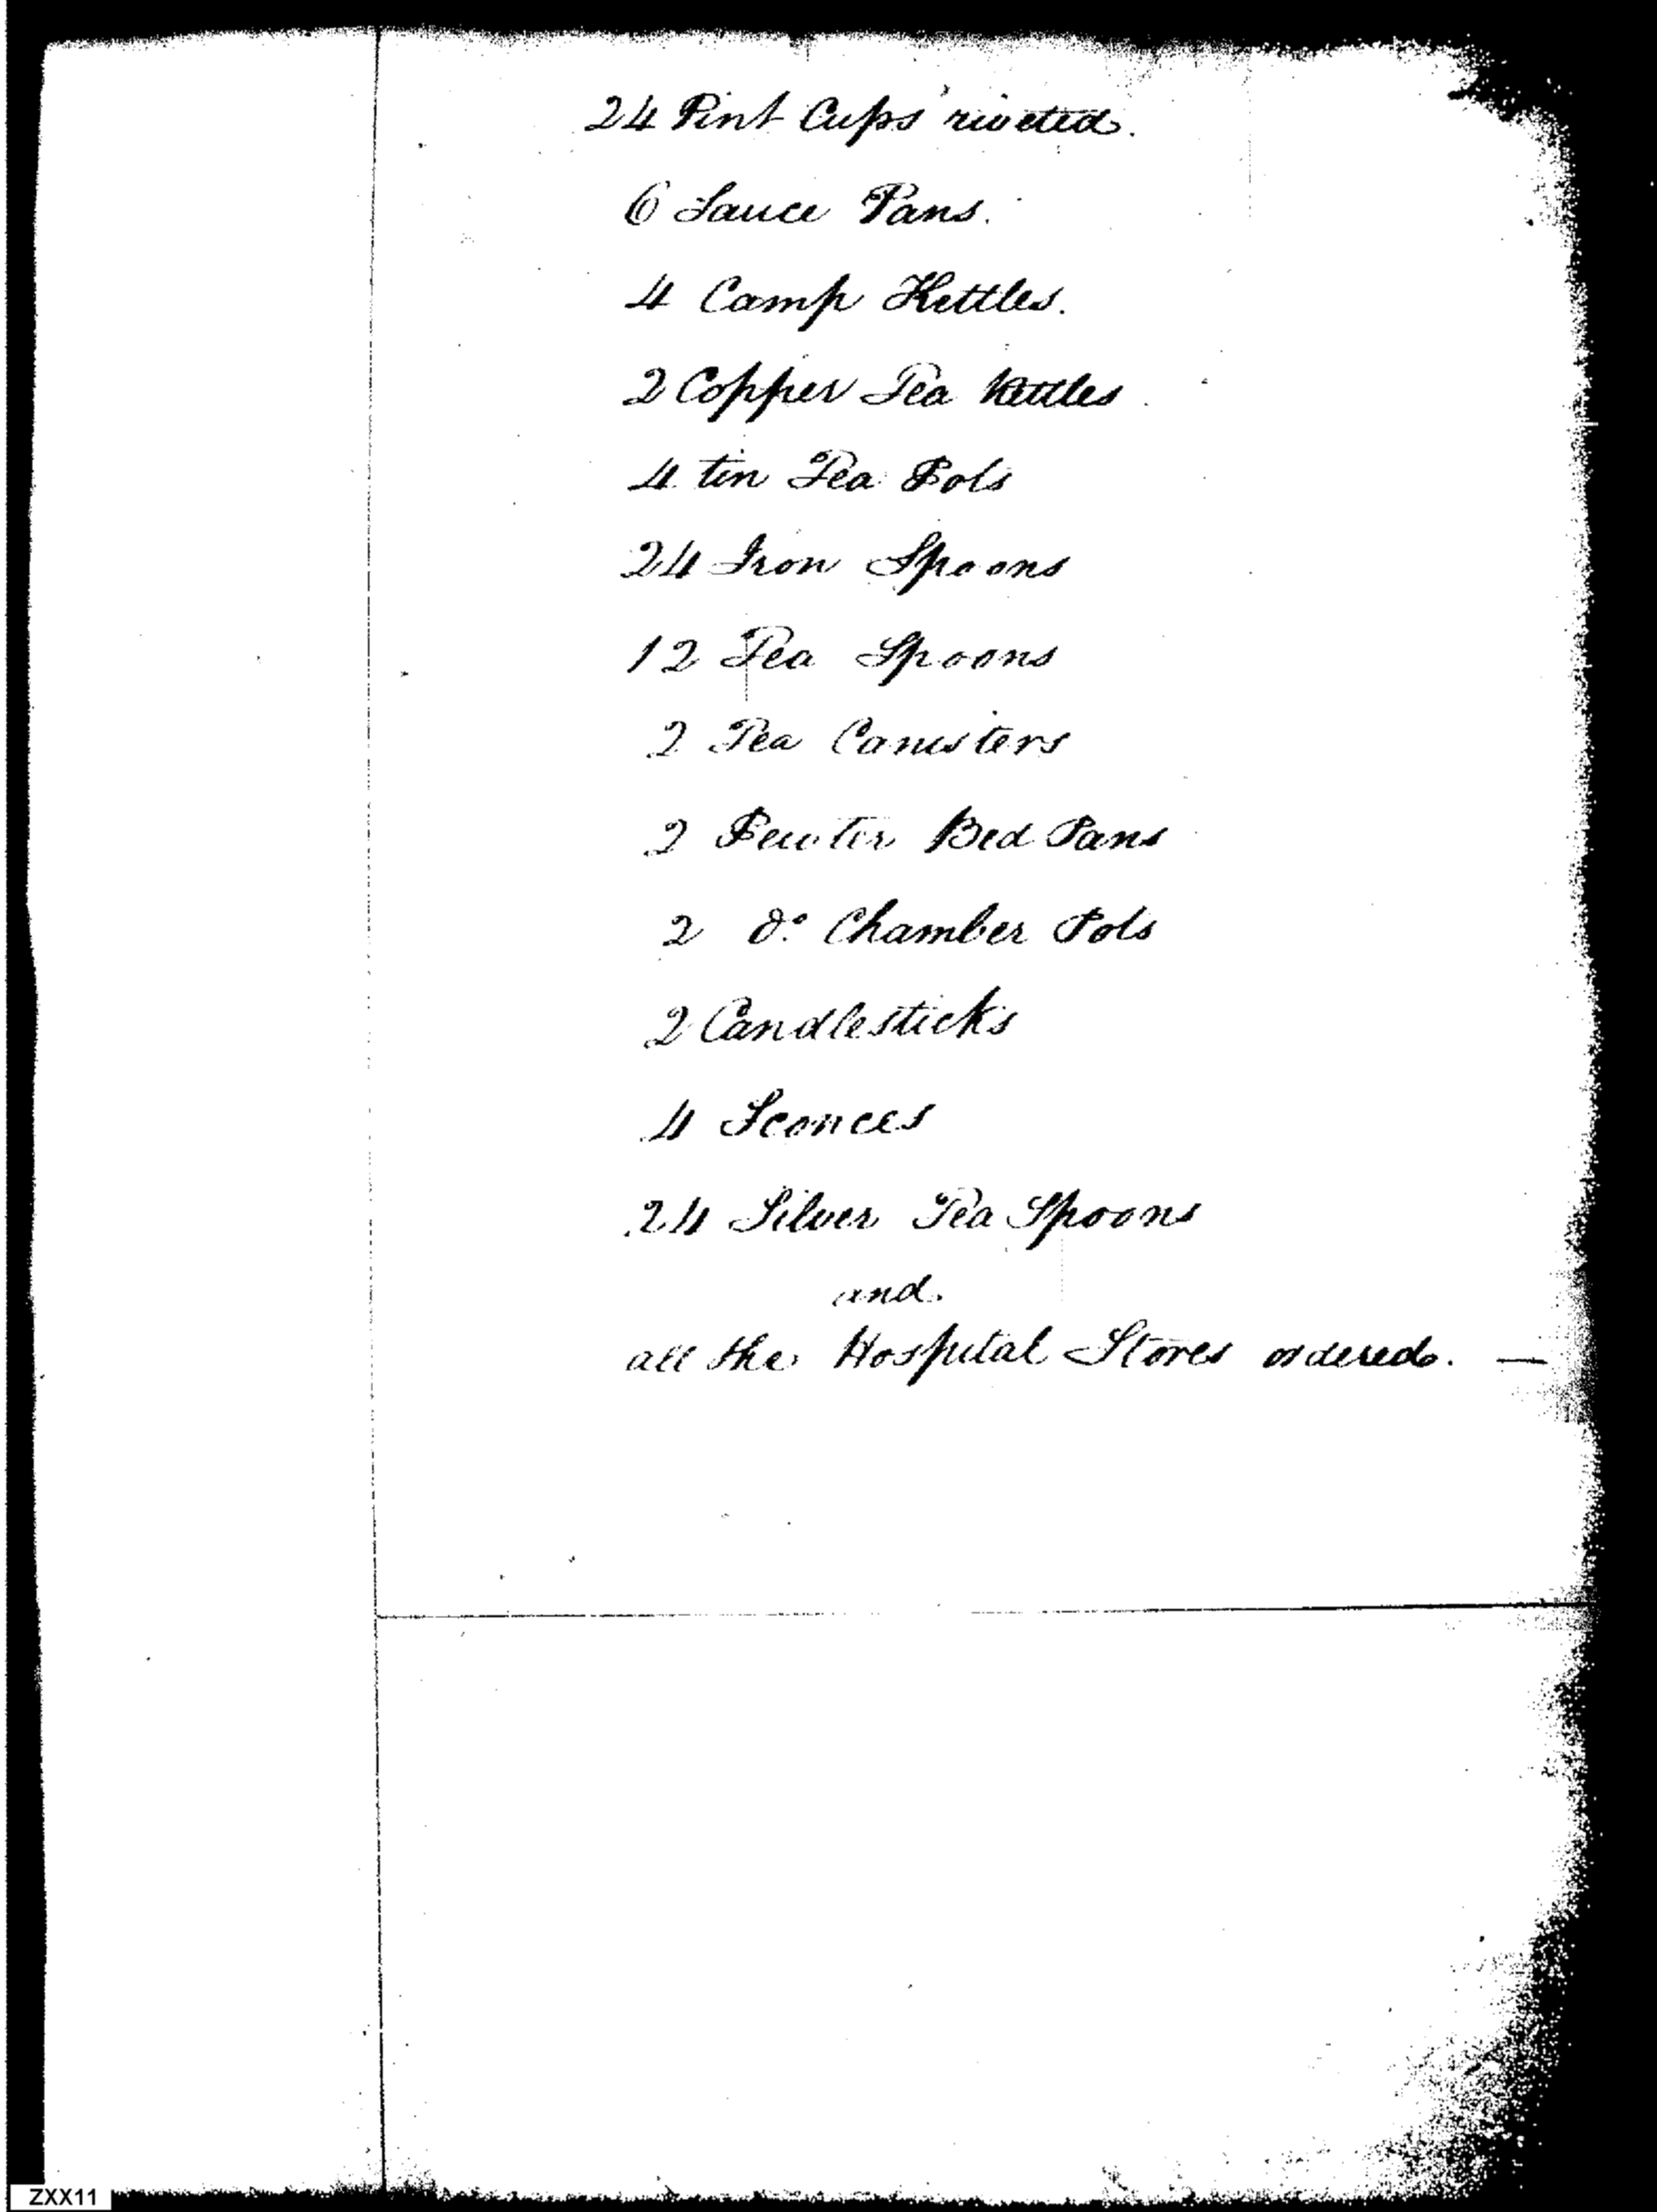 24 Pint Cups riveted.
6 Sauce Pans.
4 Camp Kettles.
2 Copper Tea Kettles.
4 tin Tea Pots
24 Iron Spoons
12 Tea Spoons
2 Tea Canisters
2 Pewter Bed Pans
2 do. Chamber Pots
2 Candlesticks
4 Sconces
24 Silver Tea Spoons
and
all the Hospital Stores ordered. —
ZXX11